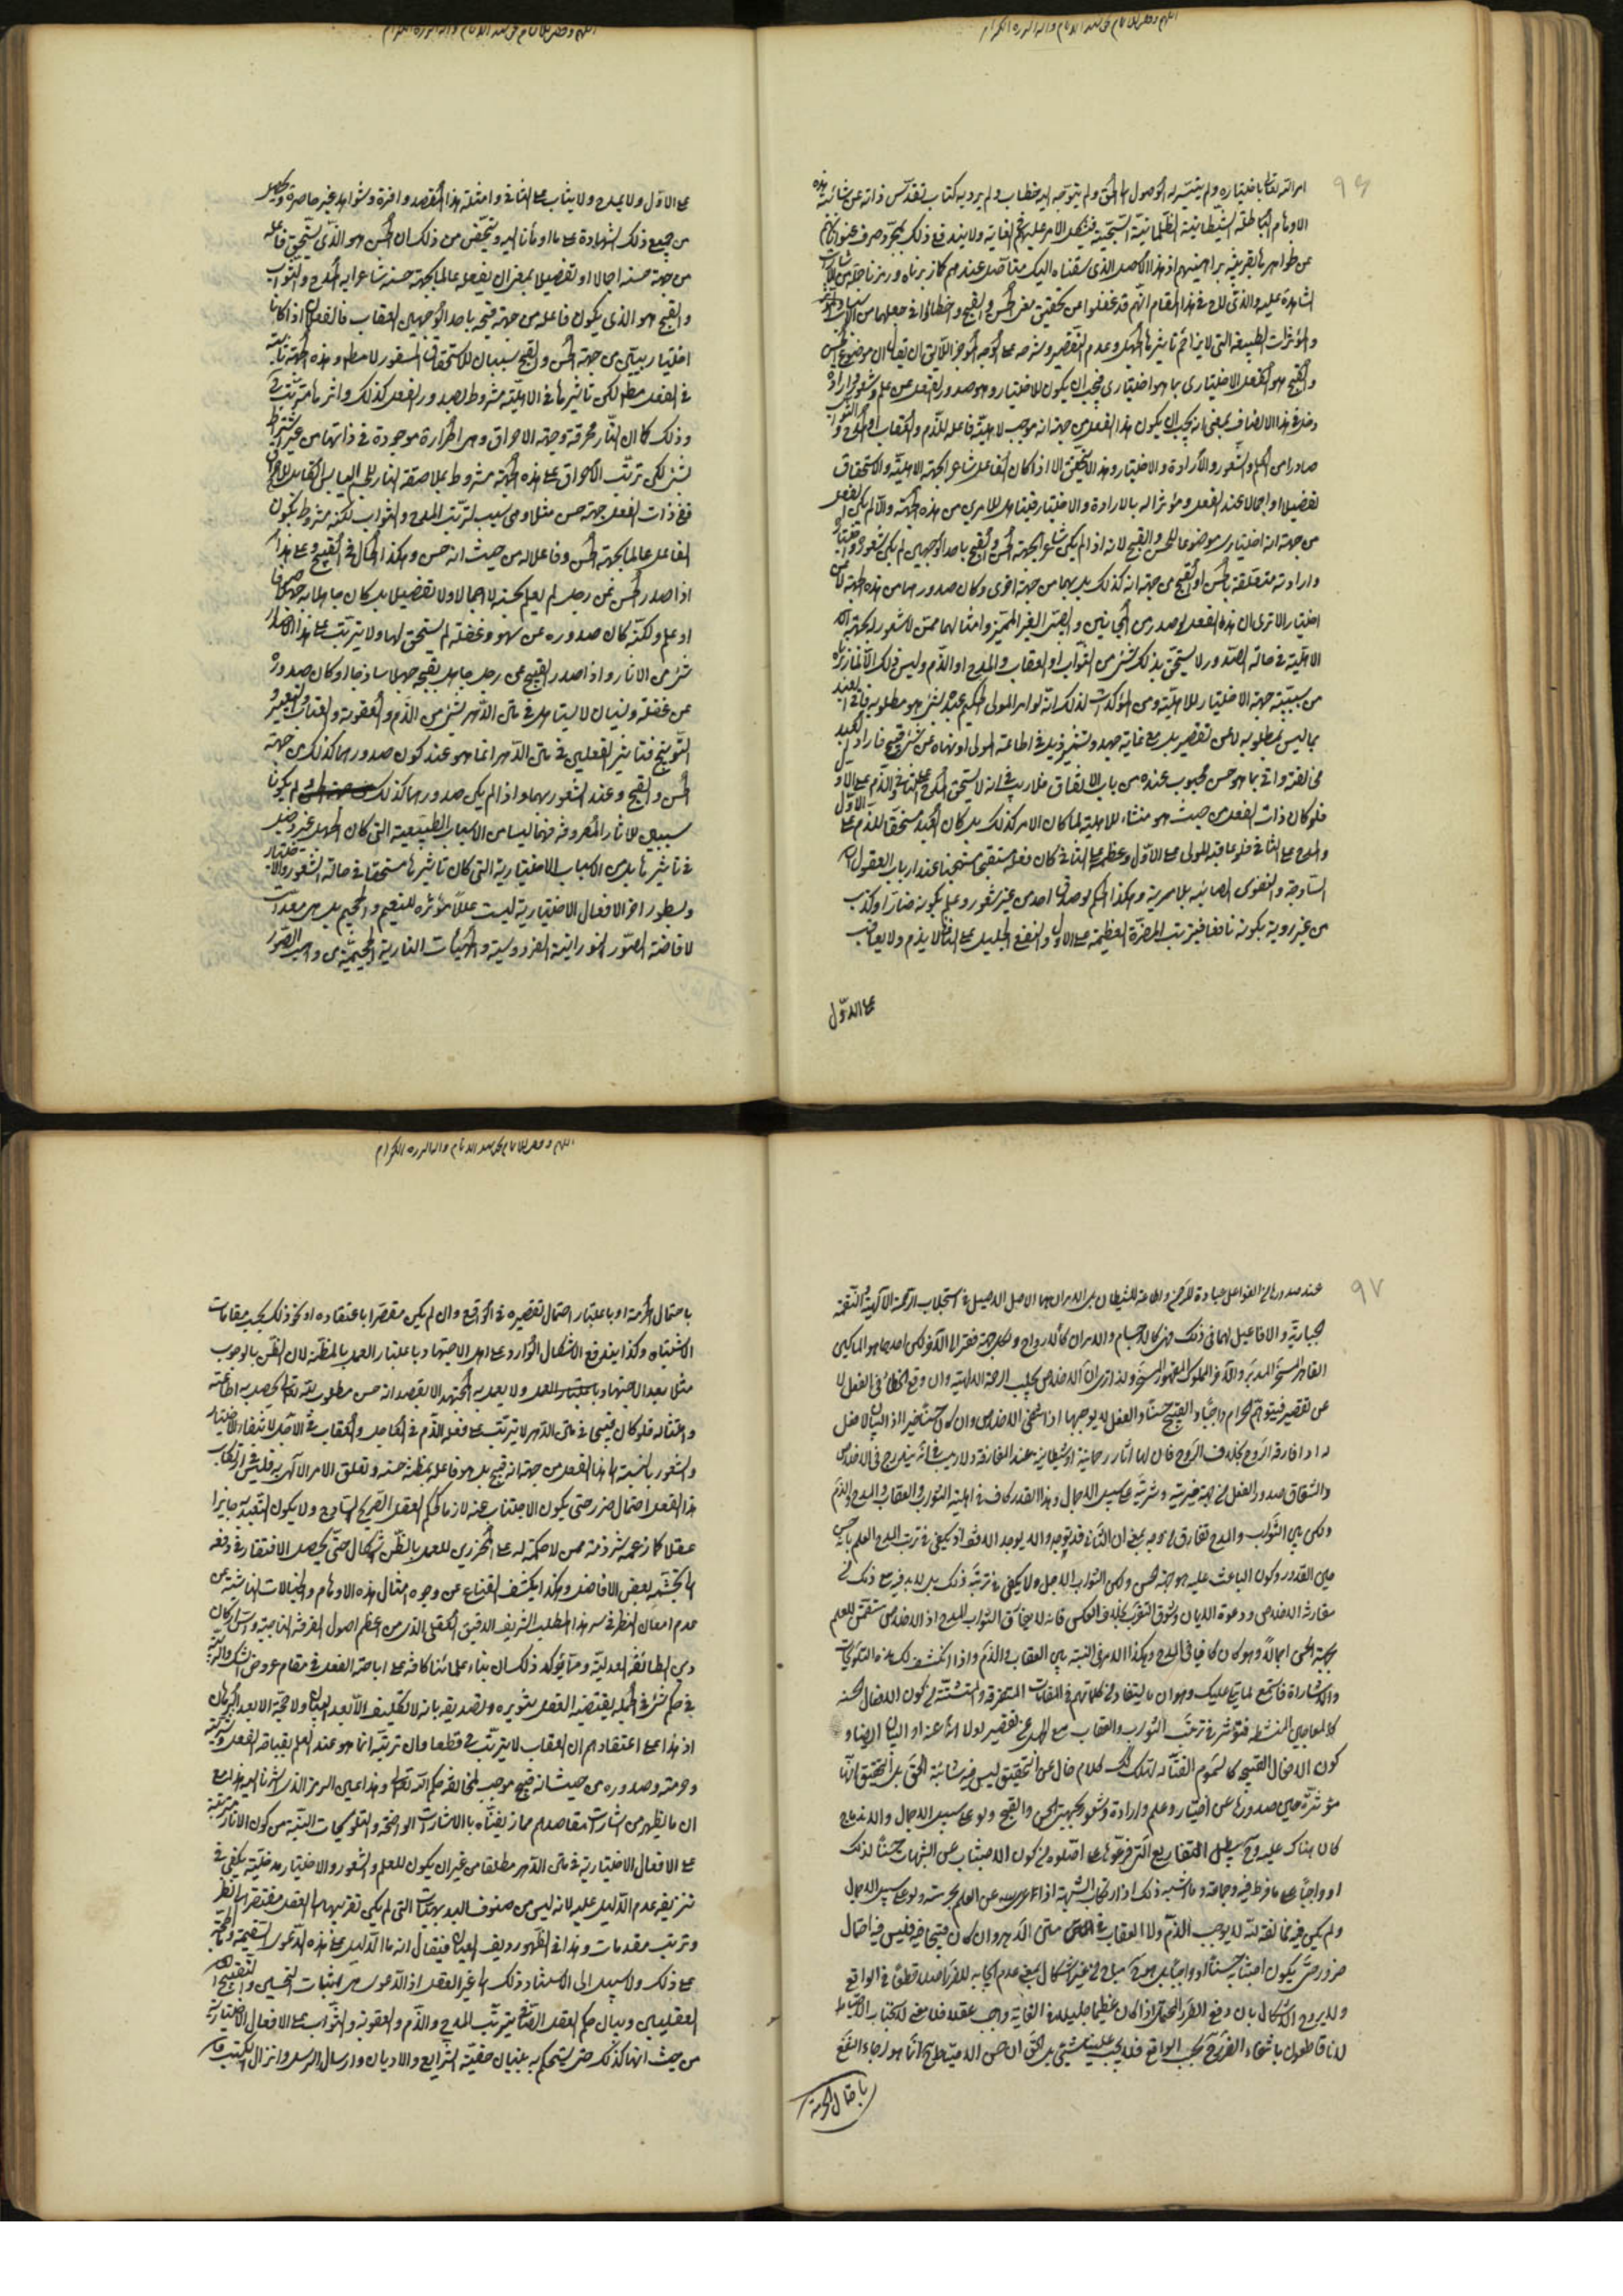 ٩٦
امر الله تعالى باختياره ولم يتيسر له الوصول الى الحق ولم يتوجه اليه خطاب ولم يرد به كتاب تقدس ذاته عن شائبة هذه
الاوهام الباطلة الشيطانية الظلمانية فيشكل الامر عليهم غاية ولا يندفع ذلك
عن ظواهرها لقرينة براهينهم اذ هذا الاصل الذي سقناه اليك متأصل عندهم كازبرناه ورمزنا
الشاهدة عليه والذي في هذا المقام انهم قد غفلوا عن تحقيق معنى الحسن والقبح واخطأوا في جعلهما من
والمؤثرات الطبيعية التي لا يزاحم تأثيرها الجهل وعدم التقصير وشرحه على الوجه الموجز اللايق ان يقال ان موضوع الحسن
والقبح هو الفعل الاختياري بما هو اختياري فيجب ان يكون للاختيار وهو صدور الفعل عن علم وشعور وارادة
دخل في هذا الاتصاف بمعنى انه يجب ان يكون هذا الفعل من جهة انه موجب لاهلية فاعله للذم والعقاب او المدح والثواب
صادرا من العلم والشعور والارادة والاختيار وهذا لا يتحقق الا اذا كان الفاعل شاعرا لجهة الاهلية والاستحقاق
تفصيلا او اجمالا عند الفعل ومؤثرا له بالارادة والاختيار من هذه الجهة والا لم يكن الفعل
من جهة انه اختياري موضوعا للحسن والقبح لانه اذا لم يكن شاعرا لجهة الحسن والقبح باحد الوجهين لم يكن شعوره واختياره
وارادته متعلقة بالحسن او القبح من جهة انه كذلك بل بهما من جهة اخرى وكان صدورهما من هذه الجهة لا عن
اختيار الا ترى ان هذه الفعل لو صدر من المجانين والصبي الغير المميز وامثالهما ممن لا شعور له بجهة
الاهلية في حالة الصدور لا يستحق بذلك شيء من الثواب او العقاب والمدح او الذم وليس ذلك الا لما زبرناه
من سببية جهة الاختيار للاهلية ومن المؤكدات لذلك انه لو امر المولى الحكيم عبده بشيء هو مطلوبه فاتى العبد
بما ليس بمطلوبه لا عن تقصير بل مع غاية جهد وتشمير ذيل في اطاعة المولى او نهاه عن شيء قبيح فاراد العبد
مخالفته واتى بما هو حسن محبوب عنده من باب الاتفاق فلا ريب في انه لا يستحق المدح على الثاني والذم على الاول
فلو كان ذات الفعل من حيث هو منشأ للاهلية لما كان الامر كذلك بل كان العبد مستحقا للذم على الاول
والمدح على الثاني فلو عاقبه المولى على الاول وعظمه على الثاني كان فعله مستقبحا مستهجنا عند ارباب العقول
الساذجة والنفوس الصائبة بلا مرية وهكذا الحكم لو صدق احد من غير شعور وعلم بكونه ضارا وكذب
من غير روية بكونه نافعا فيترتب المضرة العظيمة على الاول والنفع الجليل على الثاني لا يذم ولا يعاقب
على الاول
على الاول ولا يمدح ولا يثاب على الثاني وامثلة هذا المقصد وافرة وشواهد غير حاصرة ويحصل
من جميع ذلك الشهادة على ما اومأنا اليه ويتمحض من ذلك ان الحسن هو الذي يستحق فاعله
من جهة حسنه اجمالا او تفصيلا بمعنى ان يفعله عالما بجهة حسنه شاعرا به المدح والثواب
والقبيح هو الذي يكون فاعله من جهة قبحه باحد الوجهين العقاب فالفعل اذا كانا
اختياريين من جهة الحسن والقبح سببان للاستحقاق المسفور لا مطلقا وهذه الجهة ثابتة
في الفعل مطلقا لكن تأثيرها في الاهلية مشروط بصدور الفعل كذلك واثرها مترتب
وذلك كما ان النار محرقة وجهة الاحراق وهي الحرارة موجودة في ذاتها من غير اشتراط
بشيء لكن ترتب الاحراق على هذه الجهة مشروط بملاصقة النار للجسم اليابس القابل للاحراق
ففي ذات الفعل جهة حسن مثلا وهي سبب لترتب المدح والثواب لكنه مشروط بكون
الفاعل عالما بجهة الحسن وفاعلا له من حيث انه حسن وهكذا الحال في القبيح وعلى هذا
اذا صدر الحسن عن رجل لم يعلم بحسنه لا اجمالا ولا تفصيلا بل كان جاهلا به جهلا صرفا
او علم ولكنه كان صدوره عن سهو وغفلة لم يستحق لهما ولا يترتب على هذا الاصدار
شيء من الاثار واذا صدر القبيح عن رجل جاهل بقبحه جهلا ساذجا او كان صدوره
عن غفلة ونسيان لا يستاهل في متن الدهر بشيء من الذم والعقوبة والعتاب والتعيير و
التوبيخ فتاثير الفعلين في متن الدهر انما هو عند كون صدورهما كذلك من جهة
الحسن والقبح وعند الشعور بهما واذا لم يكن صدورهما كذلك لم يكونا
سببين للاثار المعروفة فهما ليسا من الاسباب الطبيعية التي كان الجهل غير دخيل
في تأثيرها بل من الاسباب الاختيارية التي كان تأثيرها مستحقا في حالة الشعور والاختيار
وبسطور اخر الافعال الاختيارية ليست عللا مؤثرة للنعيم والجحيم بل هي معدات
لافاضة الصور النورانية الفردوسية والهيئات النارية الجحيمية من واهب الصور
٩٧
عند صدورها من الفواعل عبادة للرحمن واطاعة للشيطان بل الامران هما الاصل الاصيل في استجلاب الرحمة الالهية والنقمة
الجبارية والافاعيل لهما في ذلك فهي كالاجسام والامران كالارواح ولكل جهة فقر الى الاخر لكن احدهما هو المالك
القاهر المسخر المدبر والاخر المملوك المقهور المسخر ولذا ترى ان الاخلاص يجلب الرحمة الالهية وان وقع الخطأ في الفعل لا
عن تقصير فيتوهم الحرام واجبا والقبيح حسنا والفعل لا يوجبها اذا انتفى الاخلاص وان كان حسنا خيرا اذ الهيكل لا فعل
له اذا فارقه الروح بخلاف الروح فان لها آثار رحمانية او شيطانية عند المفارقة ولا ريب في انه يندرج في الاخلاص
والشقاق صدور الفعل من جهة خيريته وشريته على سبيل الاجمال وهذا القدر كاف في اهلية الثواب والعقاب والمدح والذم
ولكن بين الثواب والمدح تفارق من وجه بمعنى ان الثاني قد يوجد ولا يوجد الاول اذ يكفي في ترتب المدح العلم بالحسن
حين الصدور وكون الباعث عليه هو جهة الحسن ولكن الثواب الاجل ولا يكفي في ترتبه ذلك بل لا بد فيه مع ذلك من
مقارنة الاخلاص ودعوة الايمان وشوق التقرب بخلاف العكس فانه لا يفارق الثواب المدح اذ الاخلاص متضمن للعلم
بجهة الحسن اجمالا وهو كان كافيا في المدح وهكذا الامر في النسبة بين العقاب والذم واذا انكشف لك هذه التلويحات
والاشارات فاستمع لما يتلى عليك وهو ان ما يستفاد من كلماتهم في المقامات المتفرقة والمتشتتة من كون الافعال الحسنة
كالمعاجين المنشطة فتؤثر في ترتب الثواب والعقاب مع الجهل عن تقصير او لا
كون الافعال القبيحة كالسموم القتالة لهلاك كلام خال عن التحقيق ليس فيه شائبة الحق بل التحقيق انها
مؤثرة حين صدورها عن اختيار وعلم وارادة وشعور بجهتي الحسن والقبح ولو على سبيل الاجمال والاندماج
كان هناك عليه وح يبطل التفاريع التي فرعوها على ما اصلوه من كون الاجتناب عن الشبهات حسنا لذلك
او واجبا على ما فرط فيه وما اشبه ذلك اذ ارتكاب الشبهة اذا عن العلم بحرمته ولو على سبيل الاجمال
ولم يكن فيه مخالفة لله لا يوجب الذم ولا العقاب في متن الدهر وان كان قبيحا فليس فيه احتمال
ضرر حتى يكون اجتنابه حسنا او واجبا بل هو ح مباح من غير اشكال بمعنى عدم ايجابه للضرر اصلا قطعا في الواقع
ولا يروج الاشكال بان دفع الضرر المحتمل اذا كان عظيما جليلا في الغاية واجب عقلا فلا معنى لاستحباب الاحتياط
لانا قاطعون بانتفاء الضرر ح بحسب الواقع فلا يجب علينا شيء بل الحق ان حسن الاحتياط ح انما هو لرجاء النفع
باحتمال الحرمة
باحتمال الحرمة او باعتبار احتمال تقصيره في الواقع وان لم يكن مقصرا باعتقاده او نحو ذلك بحسب مقامات
الاشتباه وكذا يندفع الاشكال الوارد على اهل الاجتهاد باعتبار العمل بالمظنة لان الظن بالوجوب
مثلا بعد الاجتهاد باعتبار العمل ولا يعمل به المجتهد الا بقصد انه حسن مطلوب لله تعالى ليحصل به اطاعته
وامتثاله فلو كان قبيحا في متن الدهر لا يترتب على فعله الذم في العاجل والعقاب في الآجل لانتفاء الاختيار
والشعور بالنسبة الى هذا الفعل من جهة انه قبيح بل هو فاعله بمظنة حسنه وتعلق الامر الالهي به فليس في ارتكاب
هذا الفعل احتمال ضرر حتى يكون الاجتناب عنه لازما بحكم العقل الصريح الساذج ولا يكون التعبد به جايزا
عقلا كما زعمه شرذمة ممن لا حكمة له على المحرزين للعمل بالظن اشكال حتى يحصل الافتقار في دفعه
الى تجشم بعض الافاضل وهكذا يكشف القناع عن وجوه امثال هذه الاوهام والخيالات الناشئة عن
عدم امعان النظر في سر هذا المطلب الشريف الدقيق العقلي الذي من اعظم اصول الفرقة الناجية ومن اركان
دين الطائفة العدلية ومما يؤكد ذلك ان بناء علمائنا كافة على اباحة الفعل في مقام عروض الشك والريبة
في حكم شيء في الجملة يقتضيه العقل بتنويره وتصديقه بانه لا تكليف الا بعد البيان ولا حجة الا بعد البرهان
اذ هذا على اعتقادهم ان العقاب لا يترتب ح قطعا وان ترتبه انما هو عند العلم بقباحة الفعل وشريته
وحرمته وصدوره من حيث انه قبيح موجب لمخالفة حكم الله تعالى وهذا عين الرمز الذي اشرنا اليه هذا مع
ان ما يظهر من اشارات مقاصدهم مما زيفناه بالاشارات الواضحة والتلويحات البينة من كون الاثار مترتبة
على الافعال الاختيارية في متن الدهر مطلقا من غير ان يكون للعلم والشعور والاختيار مدخلية يكفي في
تزييفه عدم الدليل عليه لانه ليس من صنوف البديهيات التي لم يكن تقريبها الى العقل مفتقرا الى نظر
وترتب مقدمات وهذا في الظهور رديف العيان فيقال انه ما الدليل على هذه الدعوى السقيمة وما الحجة
على ذلك ولا سبيل الى الاستناد ذلك الى غير العقل اذ الدعوى هي اثبات التحسين والتقبيح
العقليين وبيان حكم العقل الصافي بترتب المدح والذم والعقوبة والثواب على الافعال الاختيارية
من حيث انها كذلك حتى يستحكم به بنيان حقية الشرايع والاديان وارسال الرسل وانزال الكتب